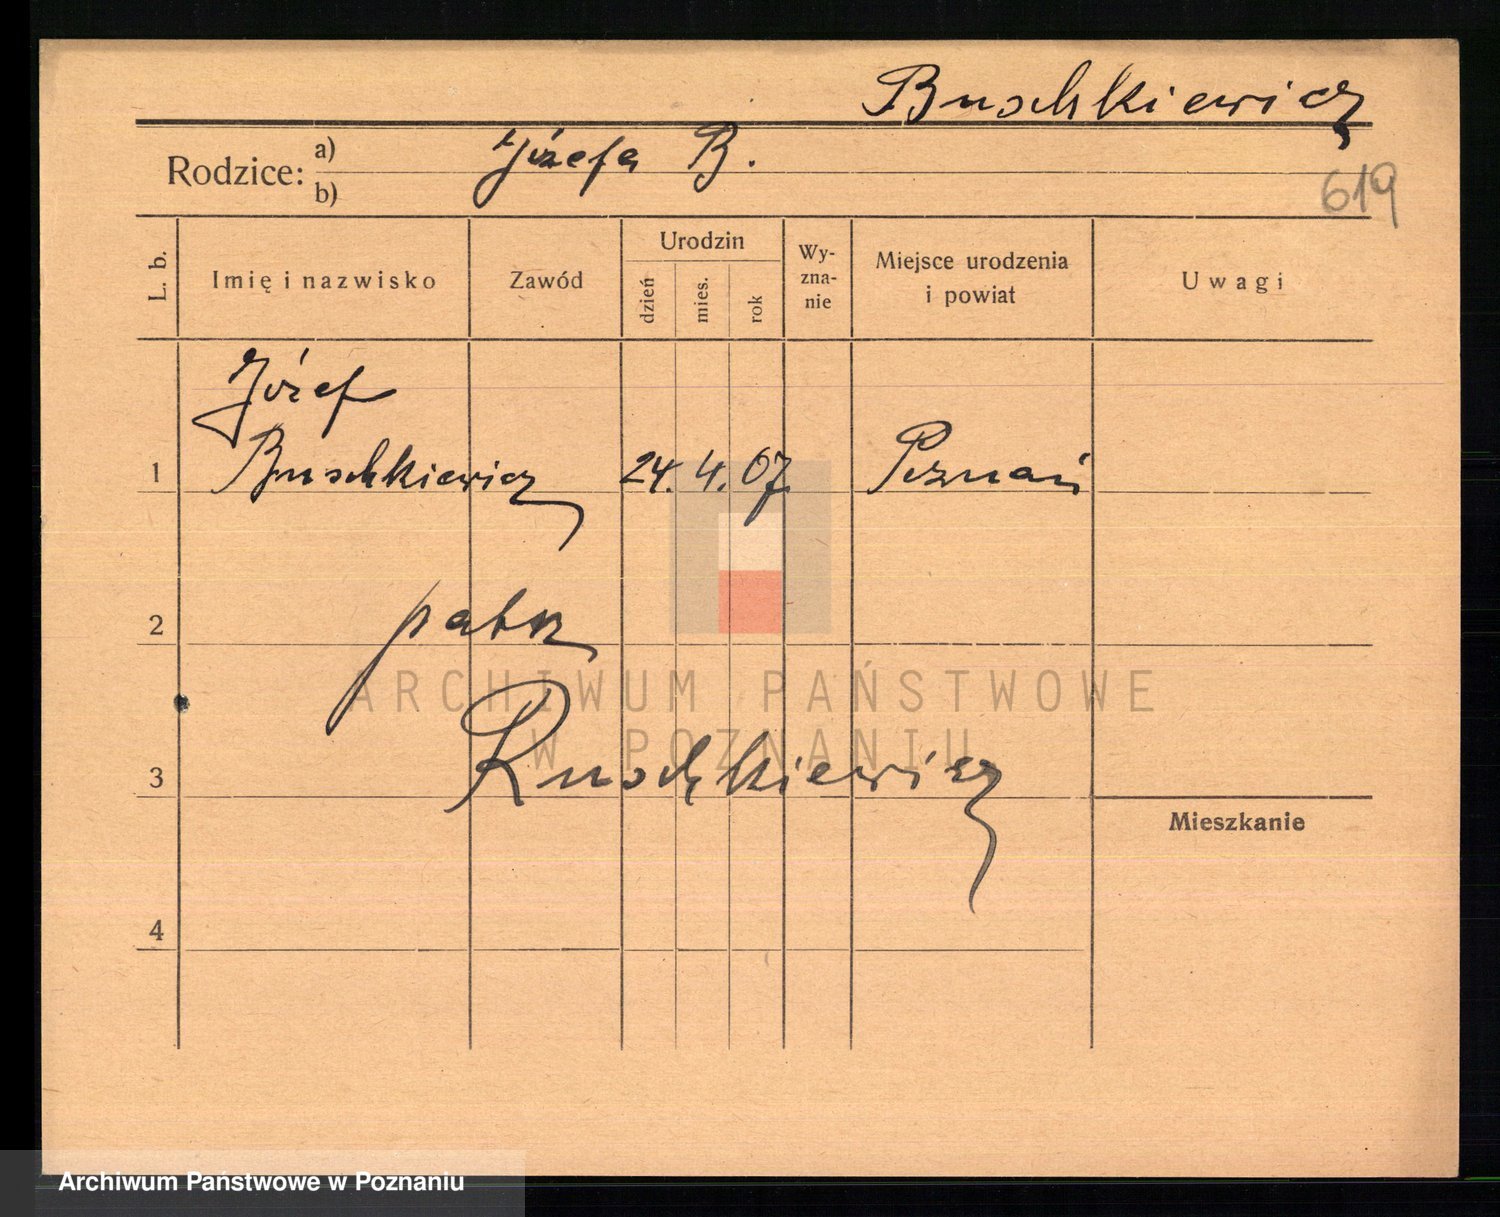 Buschkiewicz
Rodzice: a) Józefa B.
b)
619
L. b.
Imię i nazwisko
Zawód
Urodzin
dzień
mies.
rok
Wy-
zna-
nie
Miejsce urodzenia
i powiat
Uwagi
Józef
1 Buschkiewicz 24. 4. 07 Poznań
2 patrz
ARCHIWUM PAŃSTWOWE
W POZNANIU
3 Ruschkiewicz
Mieszkanie
4
Archiwum Państwowe w Poznaniu